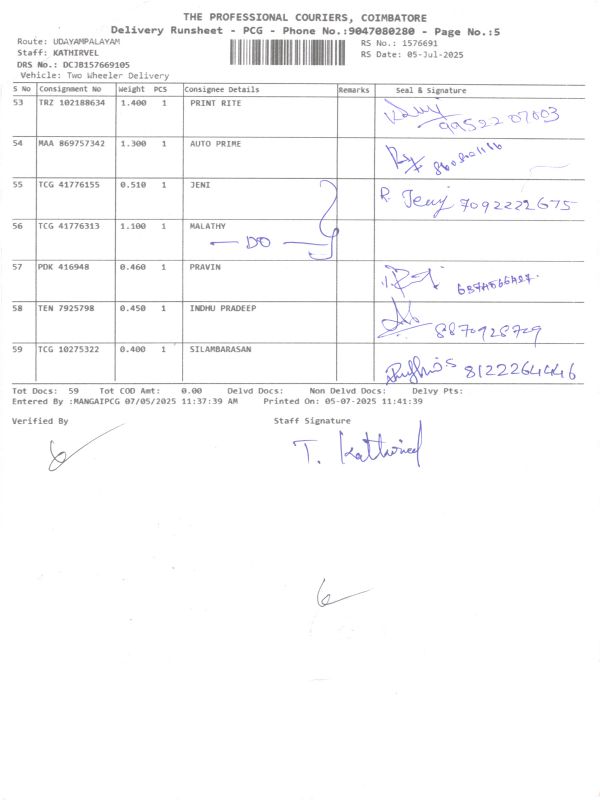 THE PROFESSIONAL COURIERS, COIMBATORE
Delivery Runsheet - PCG - Phone No.:9047080280 - Page No.:5
Route: UDAYAMPALAYAM
RS No.: 1576691
Staff: KATHIRVEL
RS Date: 05-Jul-2025
DRS No.: DCJB157669105
Vehicle: Two Wheeler Delivery
S No Consignment No Weight PCS Consignee Details Remarks Seal & Signature
53 TRZ 102188634 1.400 1 PRINT RITE 9952207003
54 MAA 869757342 1.300 1 AUTO PRIME
55 TCG 41776155 0.510 1 JENI R. Jenj 7092222675
56 TCG 41776313 1.100 1 MALATHY
DO
57 PDK 416948 0.460 1 PRAVIN
58 TEN 7925798 0.450 1 INDHU PRADEEP 8870928729
59 TCG 10275322 0.400 1 SILAMBARASAN 8122264446
Tot Docs: 59 Tot COD Amt: 0.00 Delvd Docs: Non Delvd Docs: Delvy Pts:
Entered By :MANGAIPCG 07/05/2025 11:37:39 AM Printed On: 05-07-2025 11:41:39
Verified By Staff Signature
T.